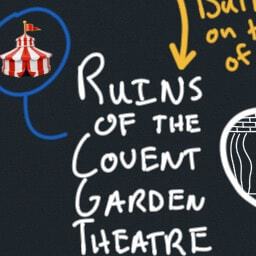 on t
of
RUINS
OF THE
COVENT
GARDEN
THEATRE